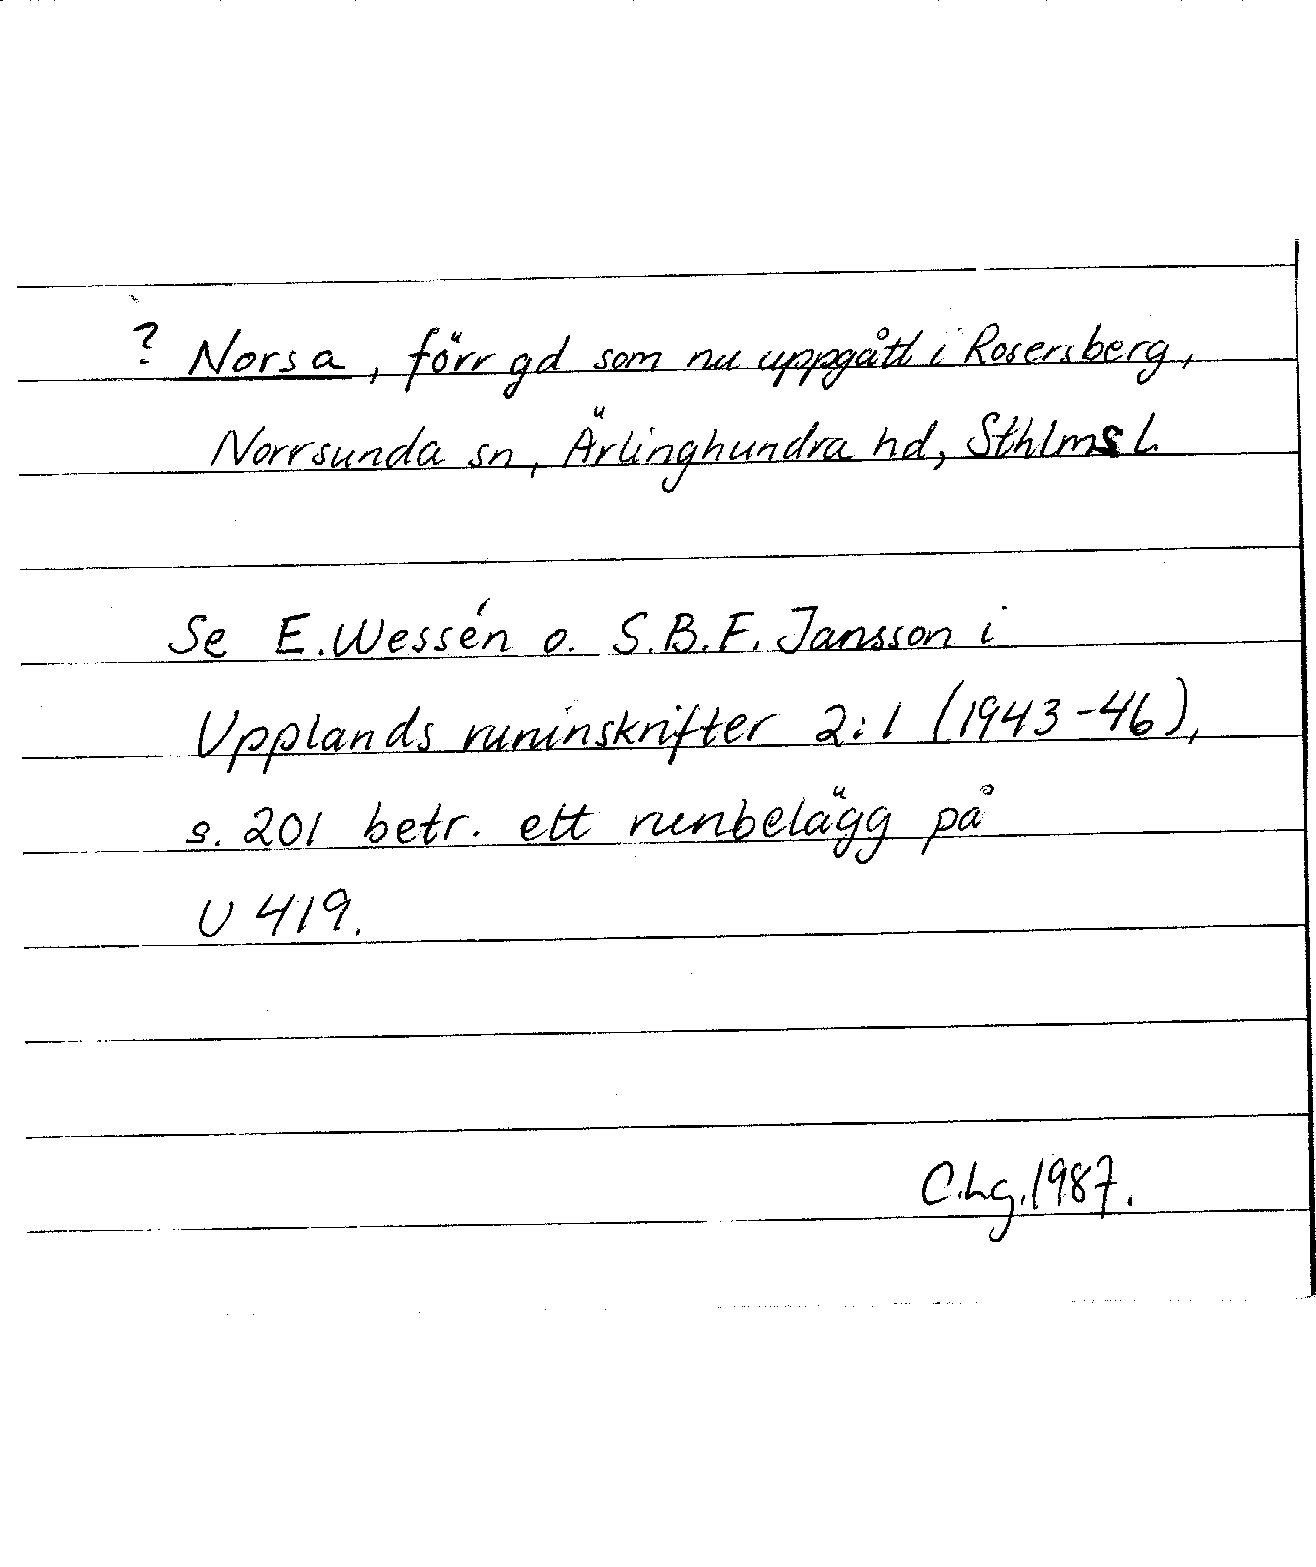 ? Norsa, förr gd som nu uppgått i Rosersberg,
Norrsunda sn, Ärlinghundra hd, Sthlms L.
Se E. Wessén o. S.B.F. Jansson i
Upplands runinskrifter 2:1 (1943-46),
s. 201 betr. ett runbelägg på
U 419.
C.Lg. 1987.